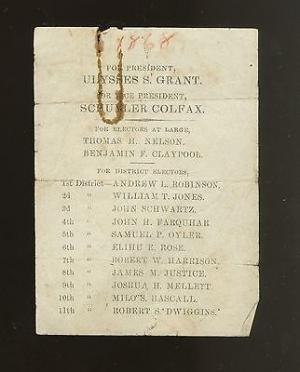 1868
FOR PRESIDENT,
ULYSSES S. GRANT.
FOR VICE PRESIDENT,
SCHUYLER COLFAX.
FOR ELECTORS AT LARGE,
THOMAS H. NELSON.
BENJAMIN F. CLAYPOOL.
FOR DISTRICT ELECTORS,
1st District—ANDREW L. ROBINSON.
2d " WILLIAM T. JONES.
3d " JOHN SCHWARTZ.
4th " JOHN H. FARQUHAR
5th " SAMUEL P. OYLER.
6th " ELIHU E. ROSE.
7th " ROBERT W. HARRISON.
8th " JAMES M. JUSTICE.
9th " JOSHUA H. MELLETT.
10th " MILO S. HASCALL.
11th " ROBERT S. DWIGGINS.